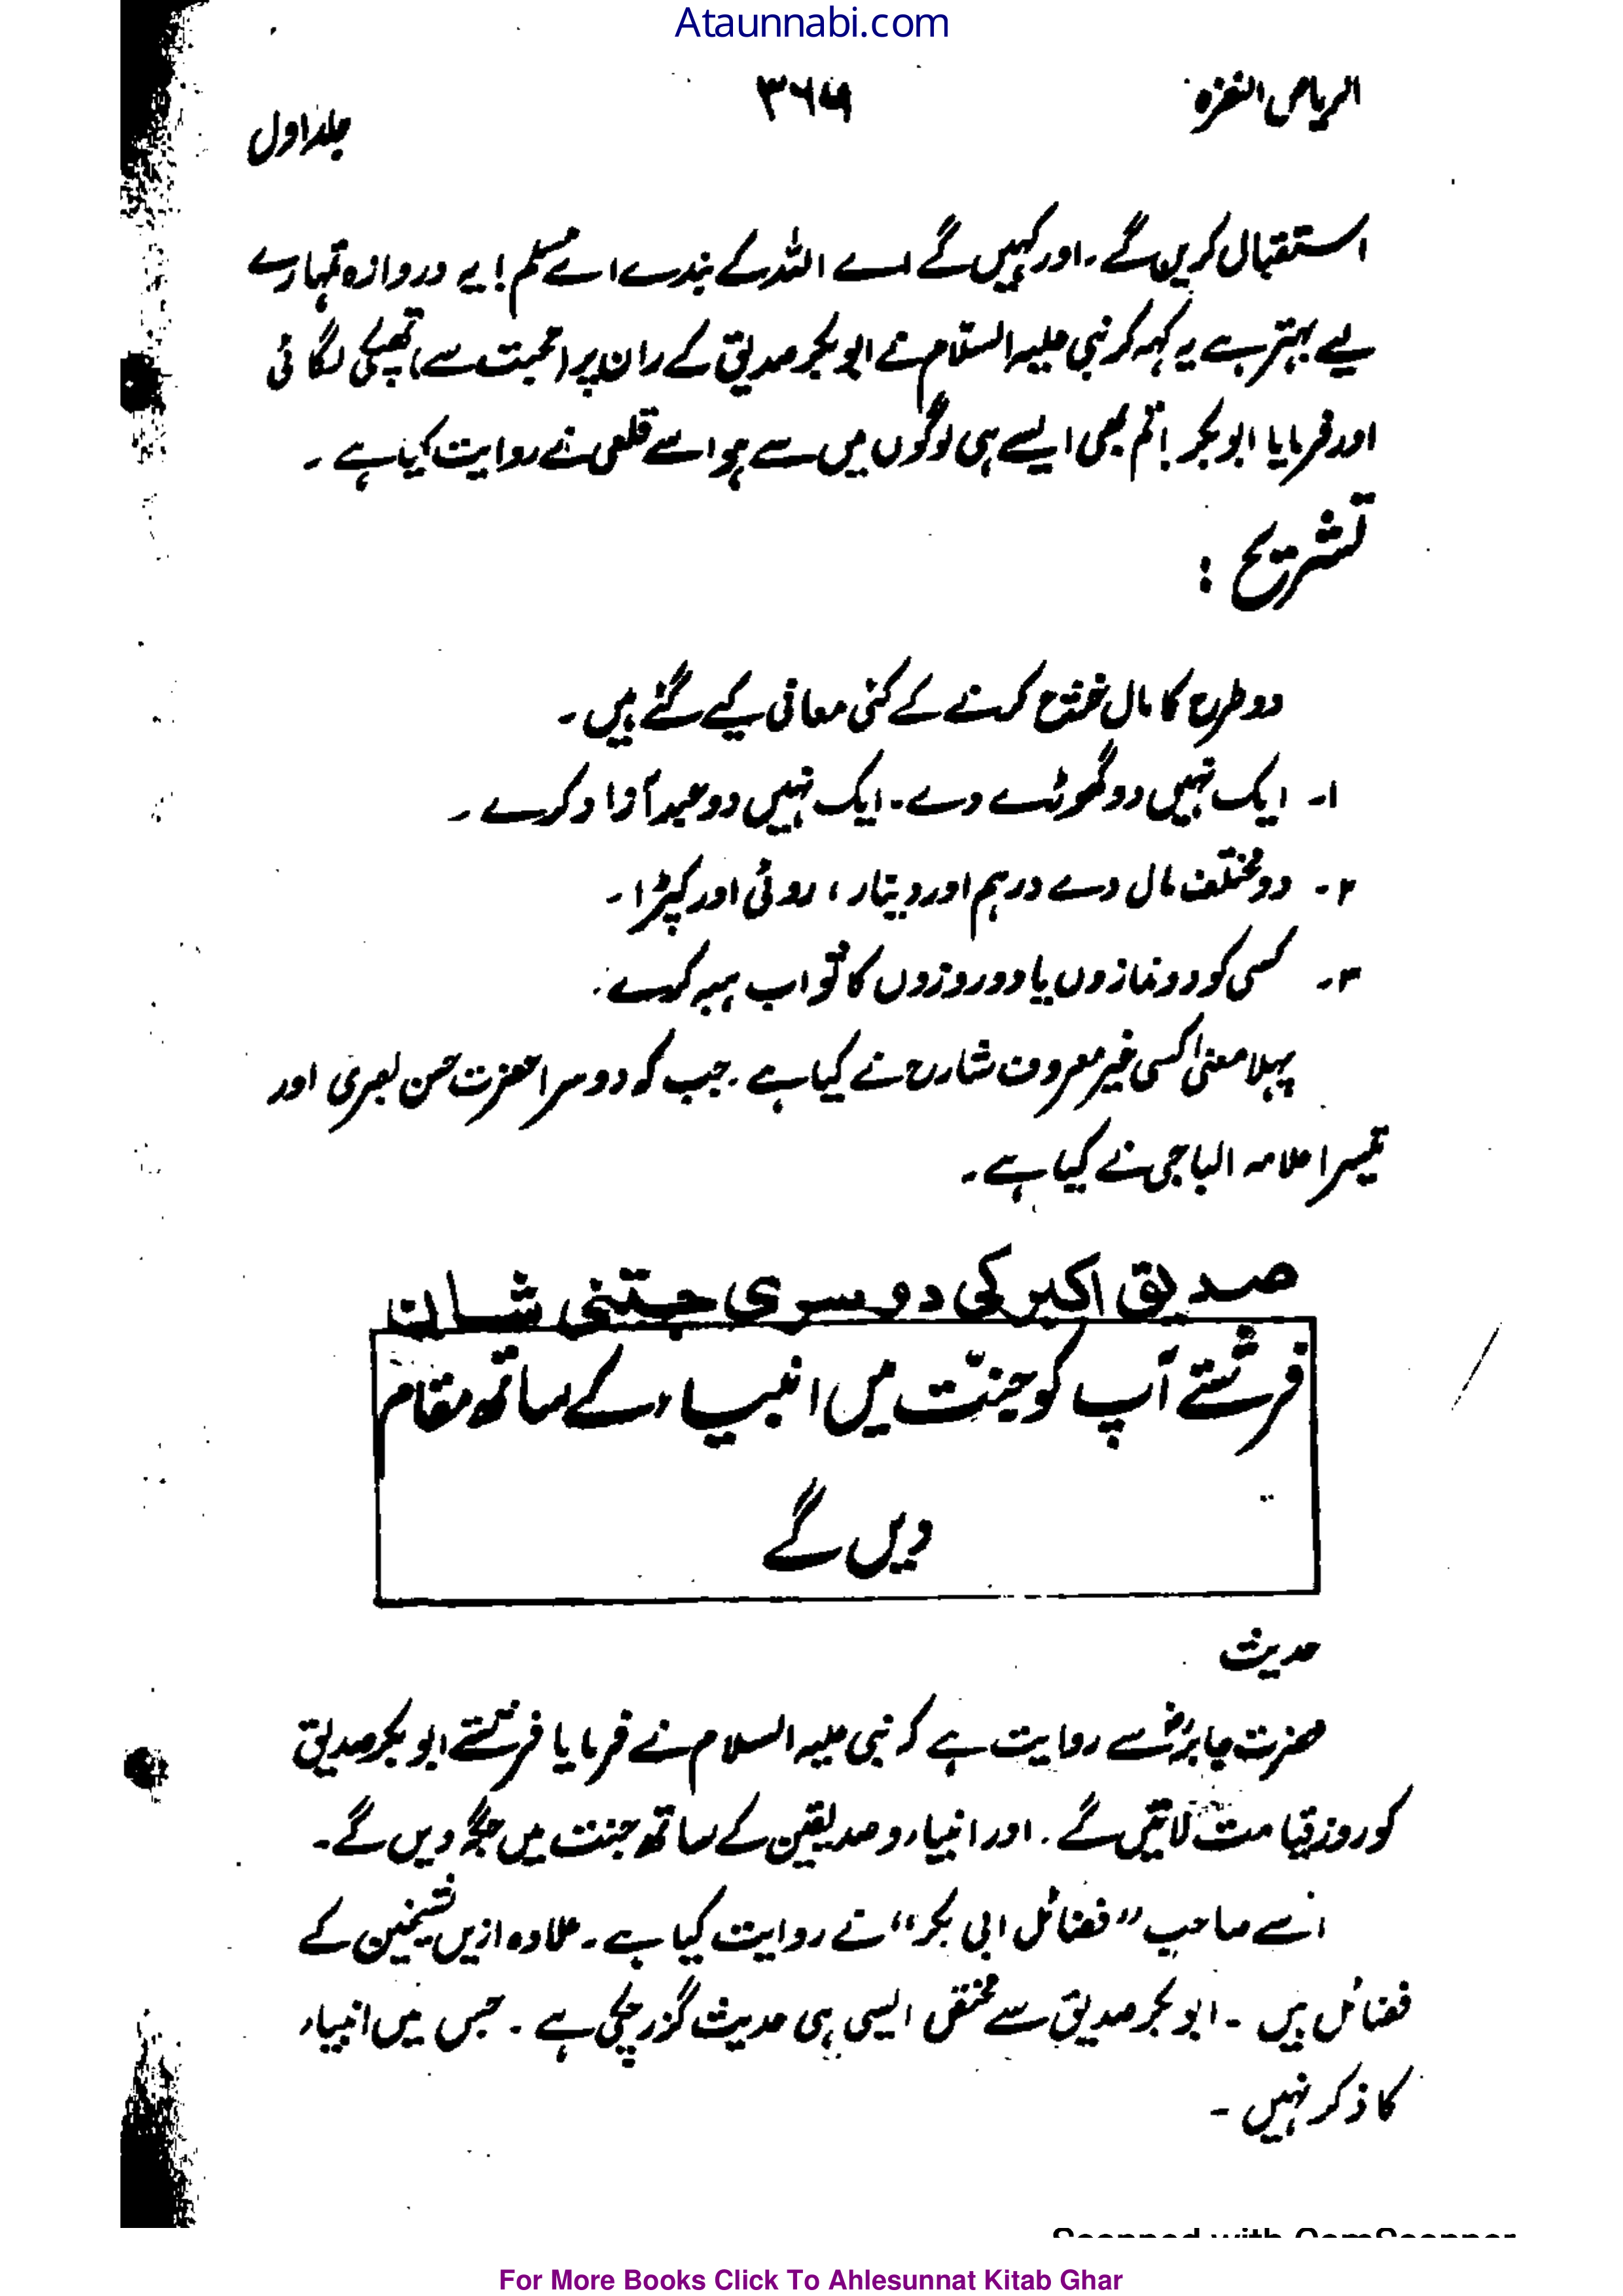 Ataunnabi.com
الریاض النضرہ
۳۶۵
جلد اول
استقبال کریں گے۔ اور کہیں گے اے اللہ کے بندے اے مسلم! یہ دروازہ تمہارے
لیے بہتر ہے یہ کہہ کر نبی علیہ السلام نے ابو بکر صدیق کے ران پر (محبت سے) تھپکی لگائی
اور فرمایا ابو بکر! تم بھی ایسے ہی لوگوں میں سے ہو اسے قلعی نے روایت کیا ہے۔
تشریح :
دو طرح کا مال خرچ کرنے کے کئی معانی کیے گئے ہیں۔
۱۔ ایک نہیں دو گھوڑے دے۔ ایک نہیں دو عبد آزاد کرے۔
۲۔ دو مختلف مال دے درہم اور دینار، روئی اور کپڑا۔
۳۔ کسی کو دو نمازوں یا دو روزوں کا ثواب ہبہ کرے۔
پہلا معنیٰ کسی غیر معروف شارح نے کیا ہے۔ جب کہ دوسرا حضرت حسن بصری اور
تیسرا علامہ الباجی نے کیا ہے۔
صدیق اکبر کی دوسری جنتی شان
فرشتے آپ کو جنّت میں انبیاء کے ساتھ مقام
دیں گے
حدیث
حضرت جابرؓ سے روایت ہے کہ نبی علیہ السلام نے فرمایا فرشتے ابو بکر صدیق
کو روز قیامت لائیں گے۔ اور انبیاء و صدیقین کے ساتھ جنت میں جگہ دیں گے۔
اسے صاحب ”فضائل ابی بکر“ نے روایت کیا ہے۔ علاوہ ازیں شیخین کے
فضائل میں ۔ ابو بکر صدیق سے مختص ایسی ہی حدیث گزر چکی ہے ۔ جس میں انبیاء
کا ذکر نہیں ۔
Scanned with CamScanner
For More Books Click To Ahlesunnat Kitab Ghar